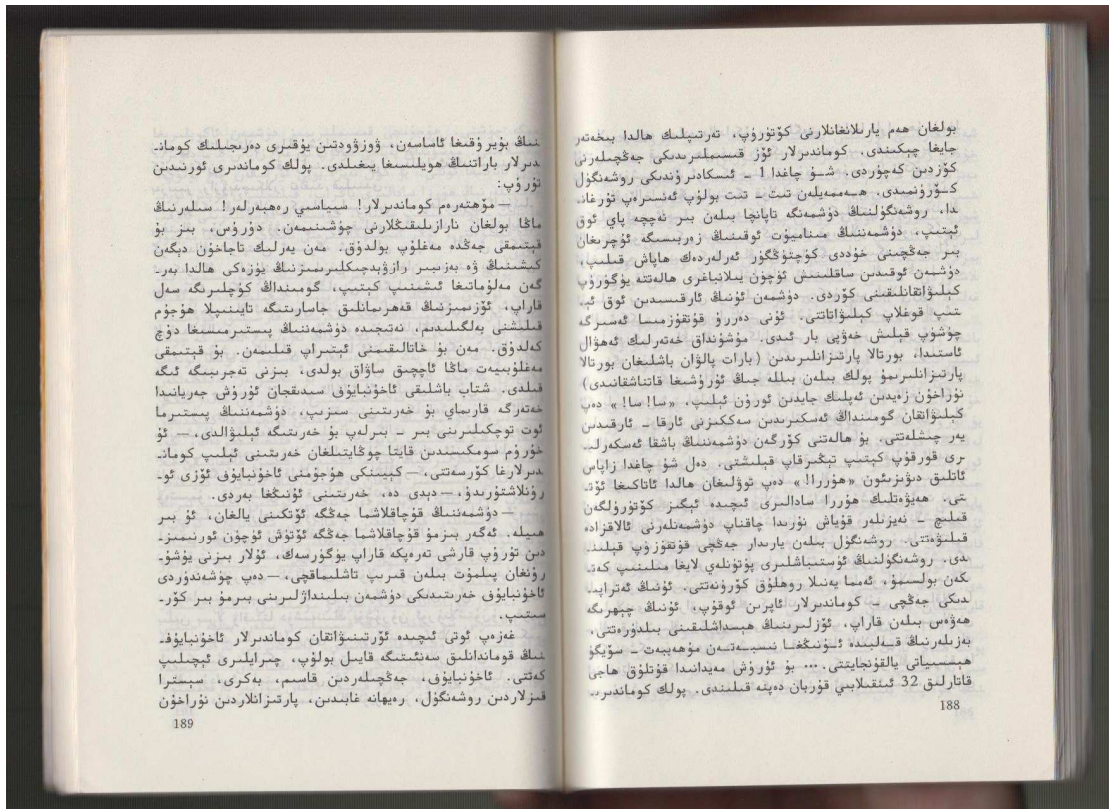 بولغان ھەم يارىلانغانلارنى كۆتۈرۈپ، تەرتىپلىك ھالدا بىخەتەر
جايغا چېكىندى. كوماندىرلار ئۆز قىسىملىرىدىكى جەڭچىلەرنى
كۆزدىن كەچۈردى. شۇ چاغدا 1 ـ ئىسكادىرۇندىكى روشەنگۈل
كۆرۈنمىدى. ھەممەيلەن تىت ـ تىت بولۇپ ئەنسىرەپ تۇرغانـ
دا، روشەنگۈلنىڭ دۈشمەنگە تاپانچا بىلەن بىر نەچچە پاي ئوق
ئېتىپ، دۈشمەننىڭ مىنامىيوت ئوقىنىڭ زەربىسىگە ئۇچرىغان
بىر جەڭچىنى خۇددى كۈچتۈڭگۈر ئەرلەردەك ھاپاش قىلىپ،
دۈشمەن ئوقىدىن ساقلىنىش ئۈچۈن يىلانباغرى ھالەتتە يۈگۈرۈپ
كېلىۋاتقانلىقىنى كۆردى. دۈشمەن ئۇنىڭ ئارقىسىدىن ئوق ئېـ
تىپ قوغلاپ كېلىۋاتاتتى. ئۇنى دەررۇ قۇتقۇزمىسا ئەسىرگە
چۈشۈپ قېلىش خەۋپى بار ئىدى. مۇشۇنداق خەتەرلىك ئەھۋال
ئاستىدا، بورتالا پارتىزانلىرىدىن (بارات پالۋان باشلىغان بورتالا
پارتىزانلىرىمۇ پولك بىلەن بىللە جىڭ ئۇرۇشىغا قاتناشقانىدى)
نۇراخۇن زەيدىن ئەپلىك جايدىن ئورۇن ئېلىپ، «سا! سا!» دەپ
كېلىۋاتقان گومىنداڭ ئەسكىرىدىن سەككىزنى ئارقا ـ ئارقىدىن
يەر چىشلەتتى. بۇ ھالەتنى كۆرگەن دۈشمەننىڭ باشقا ئەسكەرلىـ
رى قورقۇپ كېتىپ تېڭىرقاپ قېلىشتى. دەل شۇ چاغدا زاپاس
ئاتلىق دىۋىزىئون «ھۇررا!» دەپ توۋلىغان ھالدا ئاتاكىغا ئۆتـ
تى. ھەيۋەتلىك ھۇررا سادالىرى ئىچىدە ئېگىز كۆتۈرۈلگەن
قىلىچ ـ نەيزىلەر قۇياش نۇرىدا چاقناپ دۈشمەنلەرنى ئالاقزادە
قىلىۋەتتى. روشەنگۈل بىلەن يارىدار جەڭچى قۇتقۇزۇپ قېلىنـ
دى. روشەنگۈلنىڭ ئۈستىباشلىرى پۈتۈنلەي لايغا مىلىنىپ كەتـ
كەن بولسىمۇ، ئەمما يەنىلا روھلۇق كۆرۈنەتتى. ئۇنىڭ ئەتراپىـ
دىكى جەڭچى ـ كوماندىرلار ئاپىرىن ئوقۇپ، ئۇنىڭ چېھرىگە
ھەۋەس بىلەن قاراپ، ئۆزلىرىنىڭ ھېسداشلىقىنى بىلدۈرەتتى،
بەزىلەرنىڭ قەلبىدە ئۇنىڭغا نىسبەتەن مۇھەببەت ـ سۆيگۈ
ھېسسىياتى يالقۇنجايتتى.... بۇ ئۇرۇش مەيدانىدا قۇتلۇق ھاجى
قاتارلىق 32 ئىنقىلابىي قۇربان دەپنە قىلىندى. پولك كوماندىرىـ
188
نىڭ بۇيرۇقىغا ئاساسەن، ۋزۋودتىن يۇقىرى دەرىجىلىك كومانـ
دىرلار باراتنىڭ ھويلىسىغا يىغىلدى. پولك كوماندىرى ئورنىدىن
تۇرۇپ:
— مۆھتەرەم كوماندىرلار! سىياسىي رەھبەرلەر! سىلەرنىڭ
ماڭا بولغان نارازىلىقىڭلارنى چۈشىنىمەن. دۇرۇس، بىز بۇ
قېتىمقى جەڭدە مەغلۇپ بولدۇق. مەن يەرلىك تاجاخۇن دېگەن
كىشىنىڭ ۋە بەزىبىر رازۋېدچىكلىرىمىزنىڭ يۈزەكى ھالدا بەرـ
گەن مەلۇماتىغا ئىشىنىپ كېتىپ، گومىنداڭ كۈچلىرىگە سەل
قاراپ، ئۆزىمىزنىڭ قەھرىمانلىق جاسارىتىگە تايىنىپلا ھۇجۇم
قىلىشنى بەلگىلىدىم، نەتىجىدە دۈشمەننىڭ پىستىرمىسىغا دۇچ
كەلدۇق. مەن بۇ خاتالىقىمنى ئېتىراپ قىلىمەن. بۇ قېتىمقى
مەغلۇبىيەت ماڭا ئاچچىق ساۋاق بولدى، بىزنى تەجرىبىگە ئىگە
قىلدى. شتاب باشلىقى ئاخۇنبايۇف سىدىقجان ئۇرۇش جەريانىدا
خەتەرگە قارىماي بۇ خەرىتىنى سىزىپ، دۈشمەننىڭ پىستىرما
ئوت توچكىلىرىنى بىر ـ بىرلەپ بۇ خەرىتىگە ئېلىۋالدى، — ئۇ
خۇرۇم سومكىسىدىن قايتا چوڭايتىلغان خەرىتىنى ئېلىپ كومانـ
دىرلارغا كۆرسەتتى، — كېيىنكى ھۇجۇمنى ئاخۇنبايۇف ئۆزى ئوـ
رۇنلاشتۇرىدۇ، — دېدى دە، خەرىتىنى ئۇنىڭغا بەردى.
— دۈشمەننىڭ قۇچاقلاشما جەڭگە ئۆتكىنى يالغان، ئۇ بىر
ھىيلە. ئەگەر بىزمۇ قۇچاقلاشما جەڭگە ئۆتۈش ئۈچۈن ئورنىمىزـ
دىن تۇرۇپ قارشى تەرەپكە قاراپ يۈگۈرسەك، ئۇلار بىزنى يوشۇـ
رۇنغان پىلمۇت بىلەن قىرىپ تاشلىماقچى، — دەپ چۈشەندۈردى
ئاخۇنبايۇف خەرىتىدىكى دۈشمەن بلىنداژلىرىنى بىرمۇ بىر كۆرـ
سىتىپ.
غەزەپ ئوتى ئىچىدە ئۆرتىنىۋاتقان كوماندىرلار ئاخۇنبايۇفـ
نىڭ قوماندانلىق سەنئىتىگە قايىل بولۇپ، چىرايلىرى ئېچىلىپ
كەتتى. ئاخۇنبايۇف، جەڭچىلەردىن قاسىم، بەكرى، سېسترا
قىزلاردىن روشەنگۈل، رەيھانە غابىدىن، پارتىزانلاردىن نۇراخۇن
189